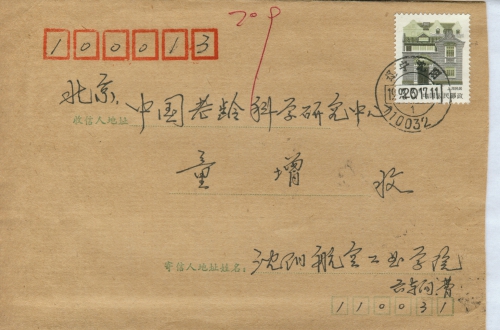 209
100013
北京. 中国老龄科学研究中心
收信人地址
董增 收
沈阳航空工业学院
寄信人地址姓名:
110031
110032